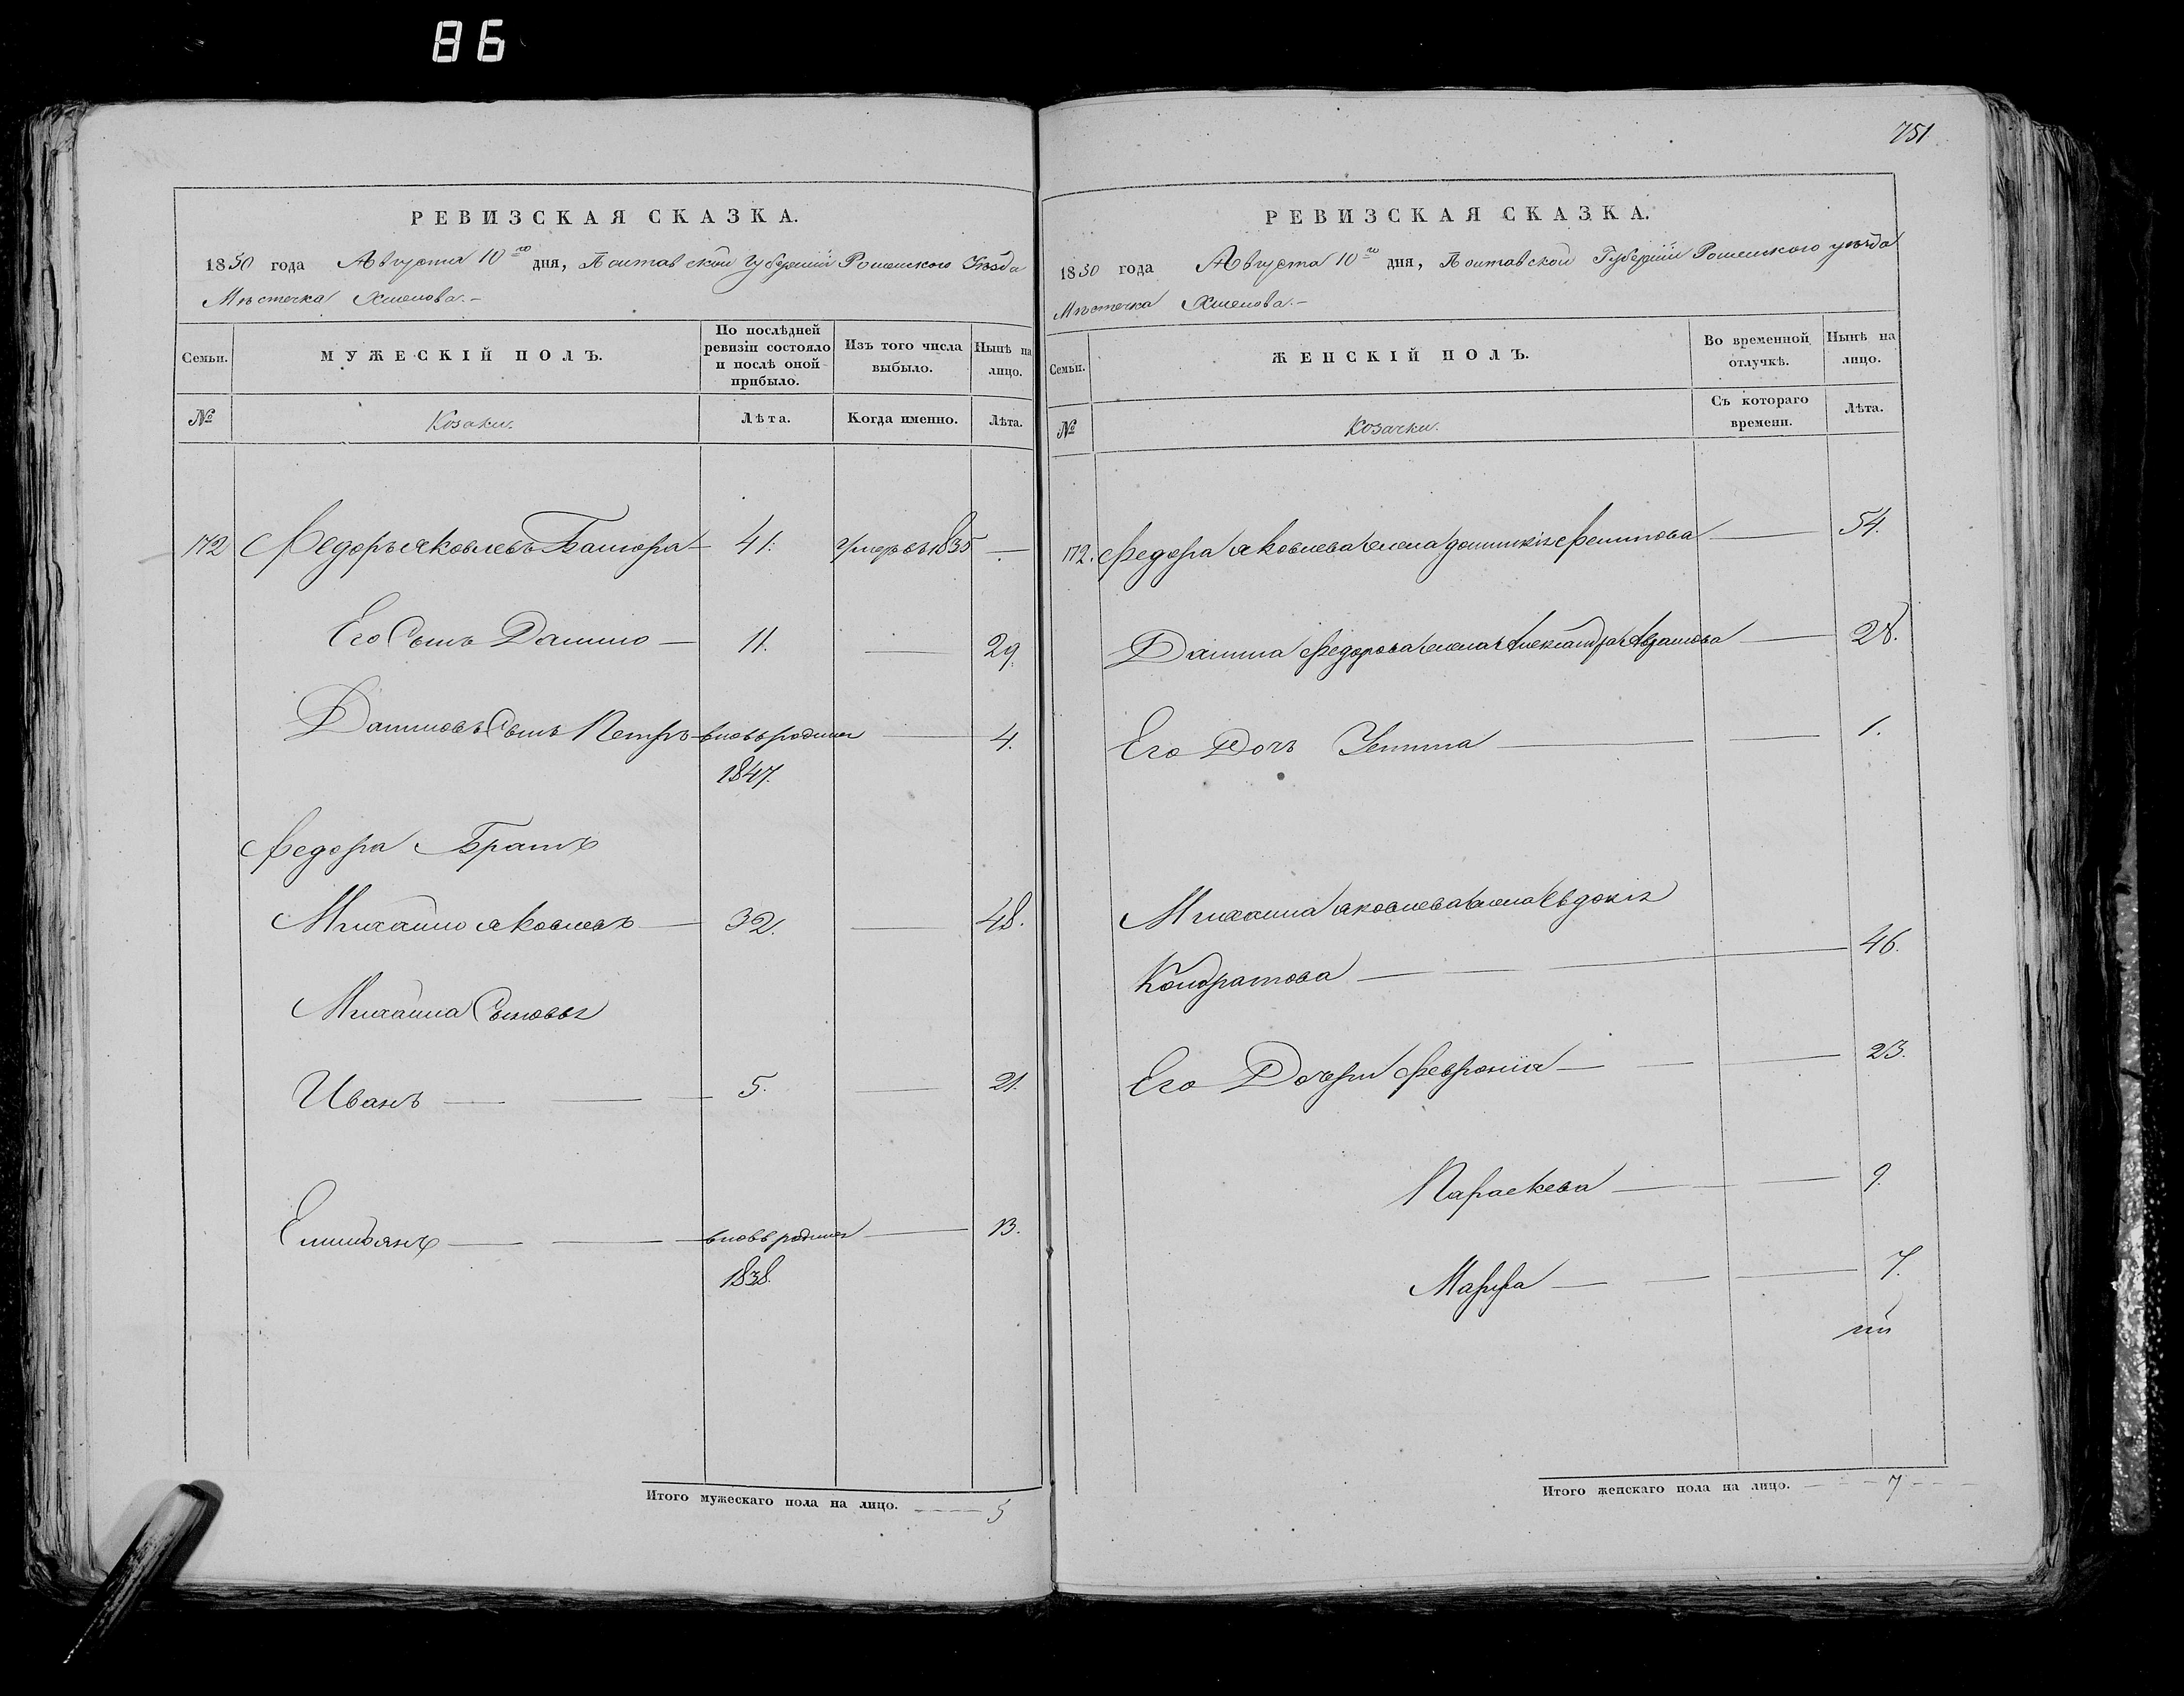 86
751.
РЕВИЗСКАЯ СКАЗКА.
1850 года Августа 10го дня, Полтавской Губерніи Роменскаго Уѣзда
Мѣстечка
Семьи.
МУЖЕСКІЙ ПОЛЪ.
По послѣдней ревизіи состояло и послѣ оной прибыло.
Изъ того числа выбыло.
Нынѣ на лицо.
№
Козаки.
Лѣта.
Когда именно.
Лѣта.
172 Федоръ Яковлевъ — 41. умеръ въ 1835 —
Его Сынъ Данило — 11. — 29.
Даниловъ Сынъ Петръ — вновьрожден — 4.
1847.
Федора Братъ
Михайло Яковлевъ — 32. — 48.
Михаила Сыновья
Иванъ — — — 5. — 21.
Емильянъ — — — вновьрожден — 13.
1838.
Итого мужескаго пола на лицо. — 5
РЕВИЗСКАЯ СКАЗКА.
1850 года Августа 10го дня, Полтавской Губерніи Роменскаго уѣзда
Мѣстечка
Семьи.
ЖЕНСКІЙ ПОЛЪ.
Во временной отлучкѣ.
Нынѣ на лицо.
№
Козачки.
Съ котораго времени.
Лѣта.
172. Федора Яковлева жена — 54.
Данила Федорова жена Александра — 28.
Его Дочь — — 1.
Михаила Яковлева жена Евдокія
Кондратова — — 46.
Его Дочери Феվронія — — — 23.
Параскева — — — 9.
Марфа — — — 7.
Итого женскаго пола на лицо. — 7 —